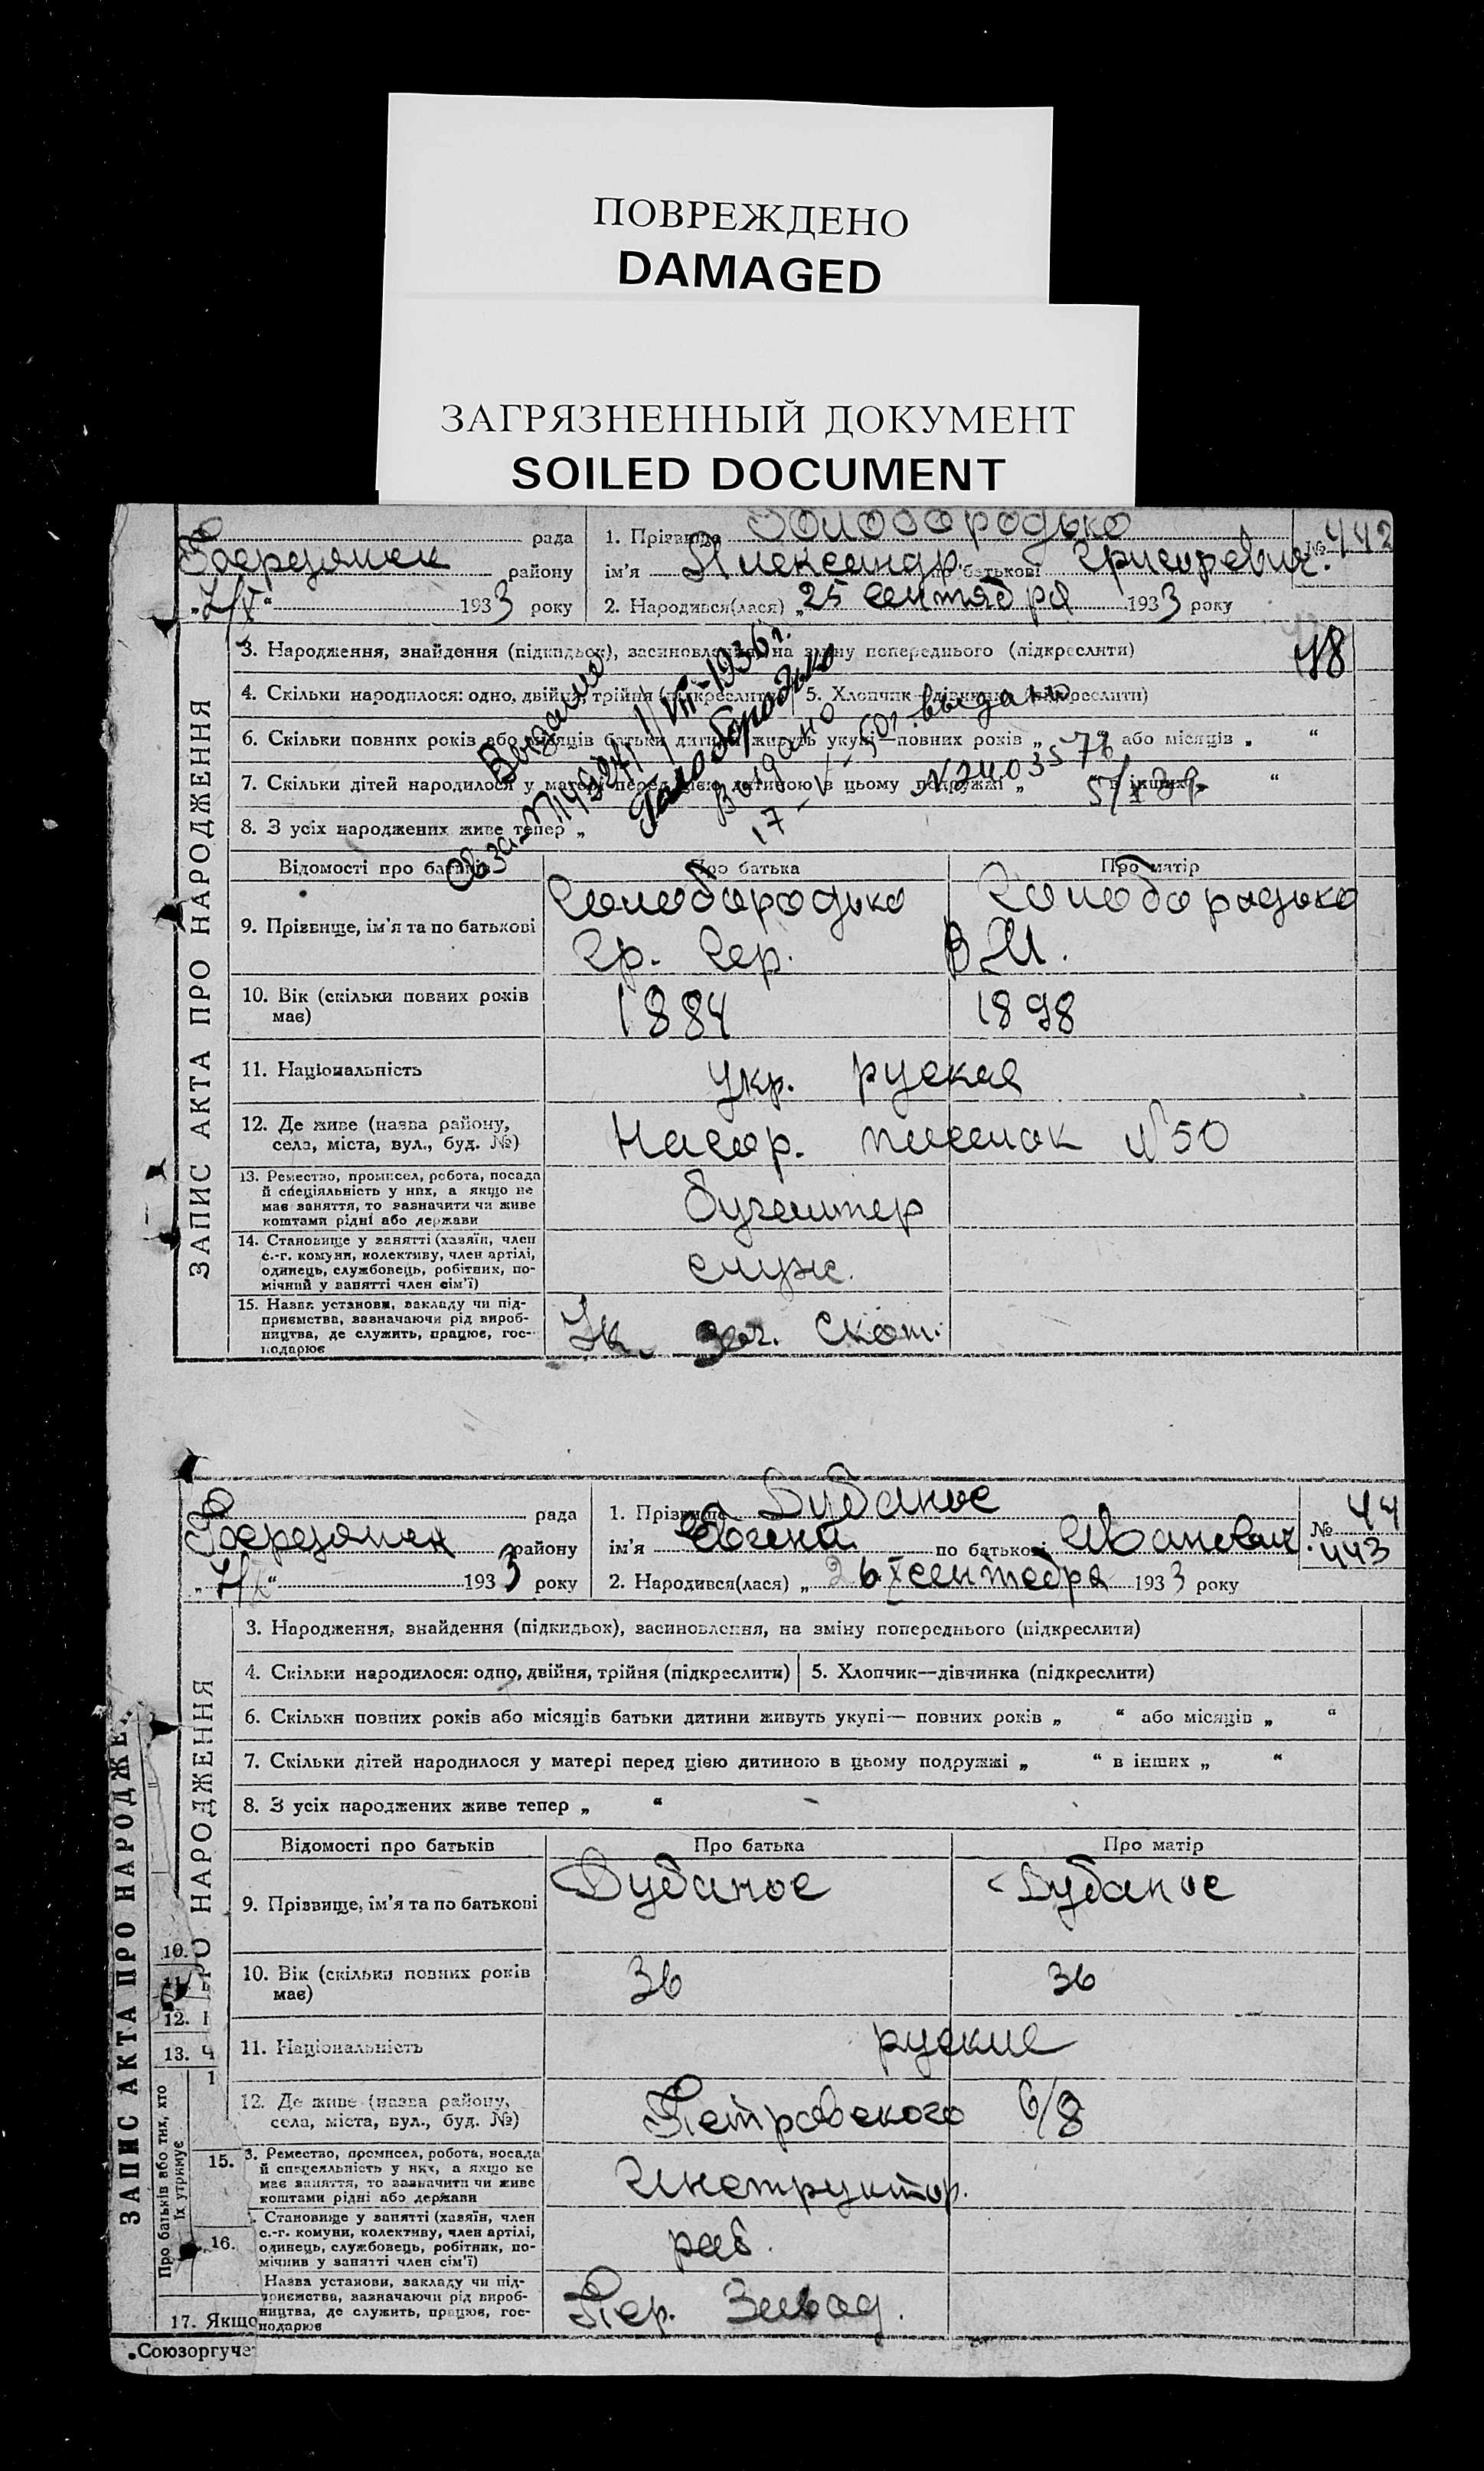 ПОВРЕЖДЕНО
DAMAGED
ЗАГРЯЗНЕННЫЙ ДОКУМЕНТ
SOILED DOCUMENT
рада
1. Прізвище Голобородько
№ 442
району
ім'я Александр по батькові Григоревич.
1933 року
2. Народився(лася) „25 Сентября 1933 року
ЗАПИС АКТА ПРО НАРОДЖЕННЯ
3. Народження, знайдення (підкидьок), засиновлення, на зміну попереднього (підкреслити)
48
4. Скільки народилося: одно, двійня, трійня (підкреслити) 5. Хлопчик—дівчинка (підкреслити)
6. Скільки повних років або місяців батьки дитини живуть укупі—повних років „ “ або місяців „ “
7. Скільки дітей народилося у матері перед цією дитиною в цьому подружжі „ “ в інших „ “
8. З усіх народжених живе тепер „
Выдано
VII-1936 г.
Голобородько
Выдано
17-V-
выдано
Відомості про батьків
Про батька
Про матір
9. Прізвище, ім'я та по батькові
Голобородько
Голобородько
Гр. Сер.
В.М.
10. Вік (скільки повних років має)
1884
1898
11. Національність
укр. руская
12. Де живе (назва району, села, міста, вул., буд. №)
Нагор. поселок №50
13. Ремество, промисел, робота, посада й спеціяльність у них, а якщо не має заняття, то зазначити чи живе коштами рідні або держави
бугалтер
14. Становище у занятті (хазяїн, член с.-г. комуни, колективу, член артілі, одинець, службовець, робітник, помічний у занятті член сім'ї)
служ.
15. Назва установи, закладу чи підприємства, зазначаючи рід виробництва, де служить, працює, господарює
Заг. Скот.
рада
1. Прізвище
№ 44
443
району
ім'я Евгений по батькові Иваневич.
1933 року
2. Народився(лася) „26 сентебря 1933 року
ПРО НАРОДЖЕННЯ
3. Народження, знайдення (підкидьок), засиновлення, на зміну попереднього (підкреслити)
4. Скільки народилося: одно, двійня, трійня (підкреслити) 5. Хлопчик—дівчинка (підкреслити)
6. Скільки повних років або місяців батьки дитини живуть укупі— повних років „ “ або місяців „ “
7. Скільки дітей народилося у матері перед цією дитиною в цьому подружжі „ “ в інших „ “
8. З усіх народжених живе тепер „ “
Відомості про батьків
Про батька
Про матір
9. Прізвище, ім'я та по батькові
10. Вік (скільки повних років має)
36
36
11. Національність
руские
12. Де живе (назва району, села, міста, вул., буд. №)
Петровского 6/8
3. Ремество, промисел, робота, посада й спецеяльність у них, а якщо не має заняття, то зазначити чи живе коштами рідні або держави
Инструктор.
. Становище у занятті (хазяїн, член с.-г. комуни, колективу, член артілі, одинець, службовець, робітник, помічнив у занятті член сім'ї)
раб.
Назва установи, закладу чи підприємства, зазначаючи рід виробництва, де служить, працює, господарює
ЗАПИС АКТА ПРО НАРОДЖЕ
10.
12.
13. Ч
15.
16.
Про батьків або тих, хто їх утримує
17. Якщо
Союзоргуче